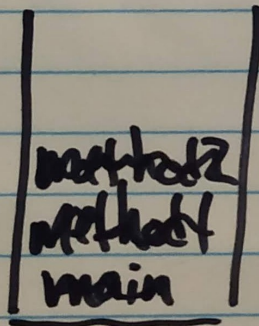 method2
method1
main